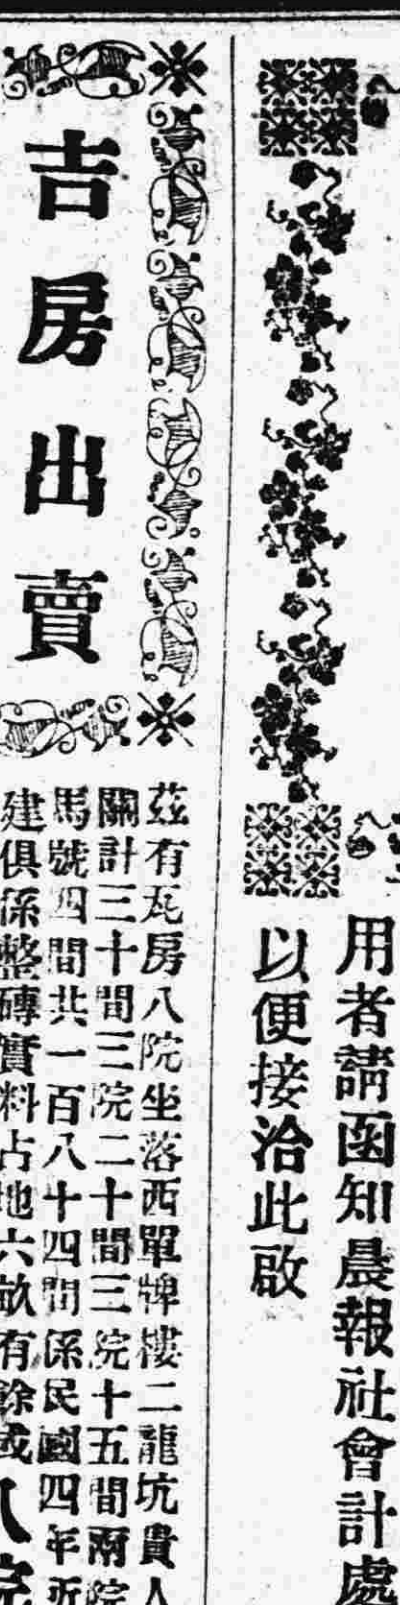 用者請函知晨報社會計處
以便接洽此啟
吉房出賣
茲有瓦房八院坐落西單牌樓二龍坑貴人
關計三十間三院二十間三院十五間兩院
馬號四間共一百八十四間係民國四年所
建俱係整磚實料占地六畝有餘或八院